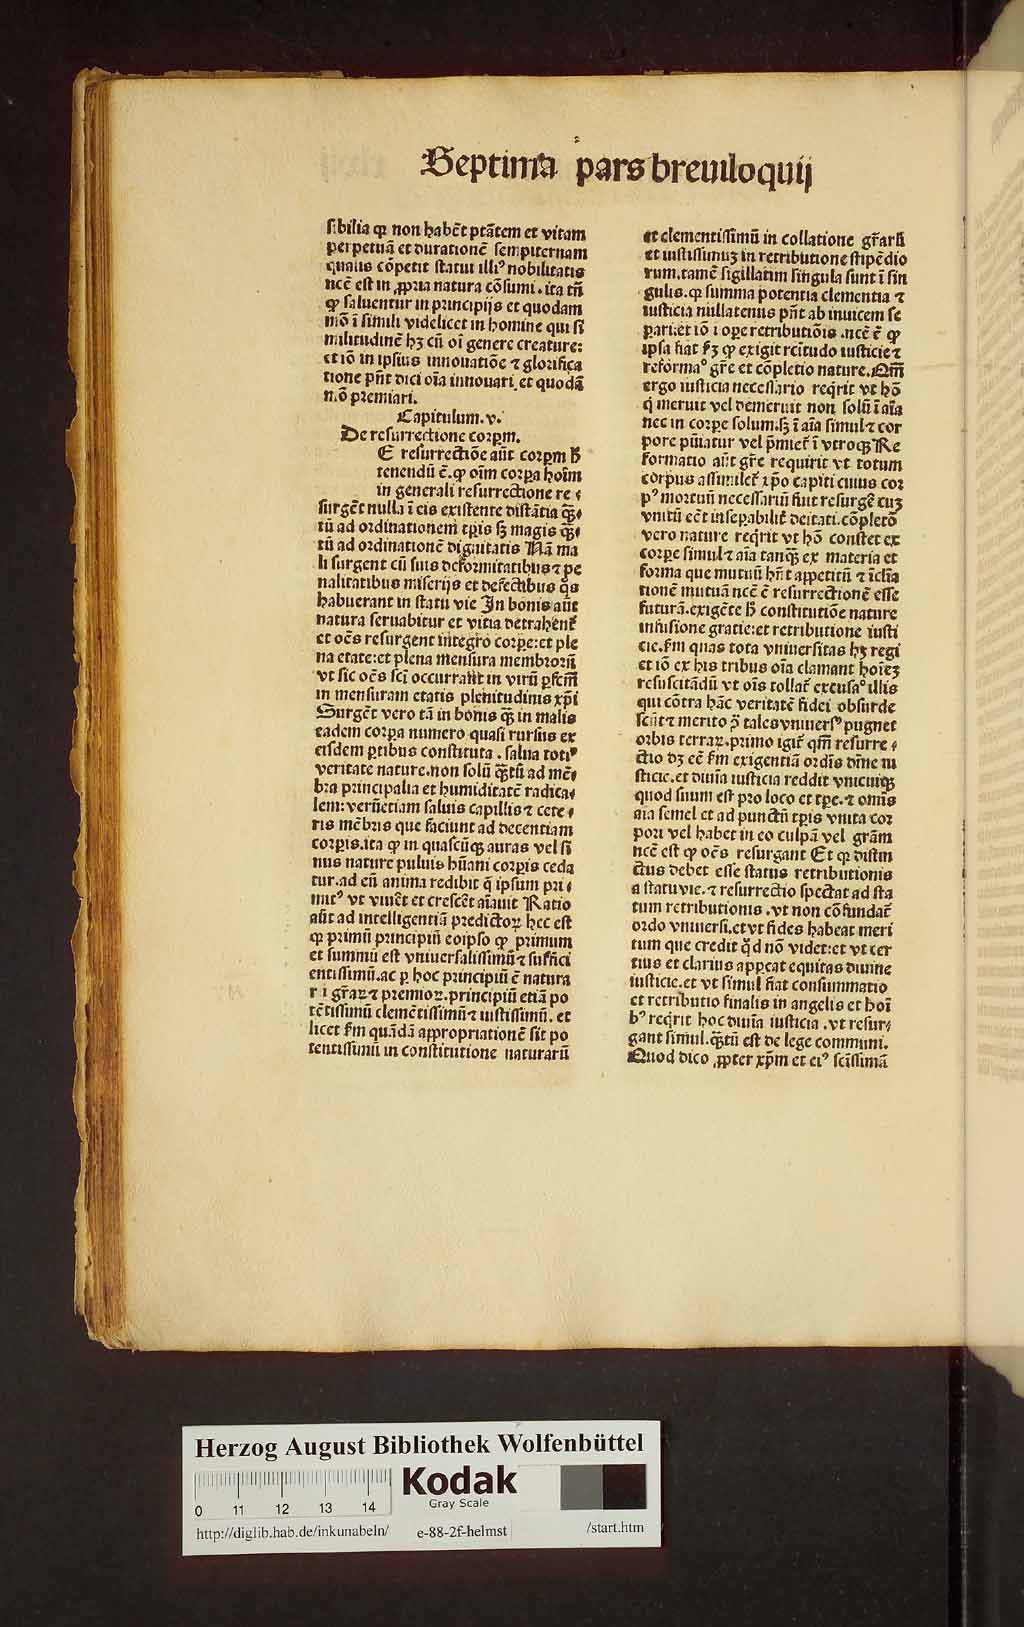 Septima pars breuiloquij
sibilia qꝫ non habēt ptātem et vitam
perpetuā et durationē sempiternam
qualis cōpetit statui illiꝰ nobilitatis
ncē est in ꝓpria natura cōsumi. ita tn̄
ꝙ saluentur in principijs et quodam
mō ī simili videlicet in homine qui si
militudinē hꝫ cū oī genere creature:
et iō in ipsius innouatiōe ⁊ glorifica
tione pn̄t dici oīa innouari et quodā
mō premiari.
Capitulum .v.
De resurrectione corpm.
E resurrectiōe aūt corpm h̄
tenendū ē. ꝙ oīm corpa hoīm
in generali resurrectione re
surgēt nulla ī eis existente distātia qꝫ
tū ad ordinationem tp̄is sꝫ magis qꝫ
tū ad ordinationē dignitatis Nā ma
li surgent cū suis deformitatibus ⁊ pe
nalitatibus miserijs et defectibus q̄s
habuerant in statu vie In bonis aūt
natura seruabitur et vitia detrahent̄
et oēs resurgent integro corpe: et ple
na etate: et plena mensura membrorū
vt sic oēs sci occurrant in virū pfcm̄
in mensuram etatis plenitudinis xp̄i
Surgēt vero tā in bonis qꝫ in malis
eadem corpa numero quasi rursus ex
eisdem ptibus constituta . salua totiꝰ
veritate nature. non solū qꝫtū ad mē
bra principalia et humiditatē radica
lem: verūetiam saluis capillis ⁊ cete
ris mēbris que faciunt ad decentiam
corpis. ita ꝙ in quascūqꝫ auras vel si
nus nature puluis hūani corpis ceda
tur. ad eū anima redibit q̄ ipsum pri
mitꝰ vt viuēt et crescēt aīauit Ratio
aūt ad intelligentiā predictoꝝ hec est
qꝫ primū principiū eoipso ꝙ primum
et summū est vniuersalissimū ⁊ suffici
entissimū. ac p hoc principiū ē natura
r i gr̄aꝝ ⁊ premioꝝ. principiū etiā po
tētissimū clemētissimū ⁊ iustissimū. et
licet fm quādā appropriationē sit po
tentissimū in constitutione naturarū
et clementissimū in collatione gr̄arū
et iustissimuꝫ in retributione stipēdio
rum. tamē sigillatim singula sunt ī sin
gulis. qꝫ summa potentia clementia ⁊
iusticia nullatenus pn̄t ab inuicem se
pari: et iō ī ope retributiōis .ncē ē ꝙ
ipsa fiat fꝫ ꝙ exigit rcītudo iusticie ⁊
reformaᵒ gr̄e et cōpletio nature. Qm̄
ergo iusticia necessario reqrit vt hō
q̄ meruit vel demeruit non solū ī aīa
nec in corpe solum. sꝫ ī aīa simul ⁊ cor
pore puniatur vel p̄miet̄ ī vtroqꝫ Re
formatio aūt gr̄e requirit vt totum
corpus assimilet̄ xp̄o capiti cuius cor
pꝰ mortuū necessariū fuit resurgē cuꝫ
vnitū eēt insepabilit̄ deitati. cōpletō
vero nature reqrit vt hō constet ex
corpe simul ⁊ aīa tanqꝫ ex materia et
forma que mutuū hn̄t appetitū ⁊ īclīa
tionē mutuā ncē ē resurrectionē esse
futurā. exigēte h̄ constitutiōe nature
infusione gratie: et retributione iusti
cie. fm quas tota vniuersitas hꝫ regi
et iō ex his tribus oīa clamant hoīeꝫ
resuscitādū vt oīs tollat̄ excusaᵒ illis
qui cōtra hāc veritatē fidei obsurde
scūt ⁊ merito p̄ tales vniuersꝰ pugnet
orbis terraꝝ. primo igit̄ qm̄ resurre
ctio dꝫ eē fm exigentiā ordīs dīne iu
sticie. et diuīa iusticia reddit vnicuiqꝫ
quod suum est pro loco et tpe. ⁊ omīs
aīa semel et ad punctū tp̄is vnita cor
pori vel habet in eo culpā vel grām
ncē est ꝙ oēs resurgant Et qꝫ distin
ctus debet esse status retributionis
a statu vie. ⁊ resurrectio spectat ad sta
tum retributionis . vt non cōfundat̄
ordo vniuersi. et vt fides habeat meri
tum que credit q̄d nō videt: et vt cer
tius et clarius appeat equitas diuine
iusticie. et vt simul fiat consummatio
et retributio finalis in angelis et hoī
bꝰ reqrit hoc diuīa iusticia . vt resur
gant simul. qꝫtū est de lege communi.
Quod dico ꝓpter xp̄m et eiꝰ scissimā
Herzog August Bibliothek Wolfenbüttel
Kodak
Gray Scale
0 11 12 13 14
http://diglib.hab.de/inkunabeln/ e-88-2f-helmst /start.htm